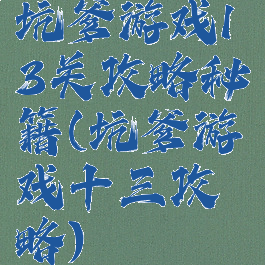 坑爹游戏1
3关攻略秘
籍(坑爹游
戏十三攻
略)